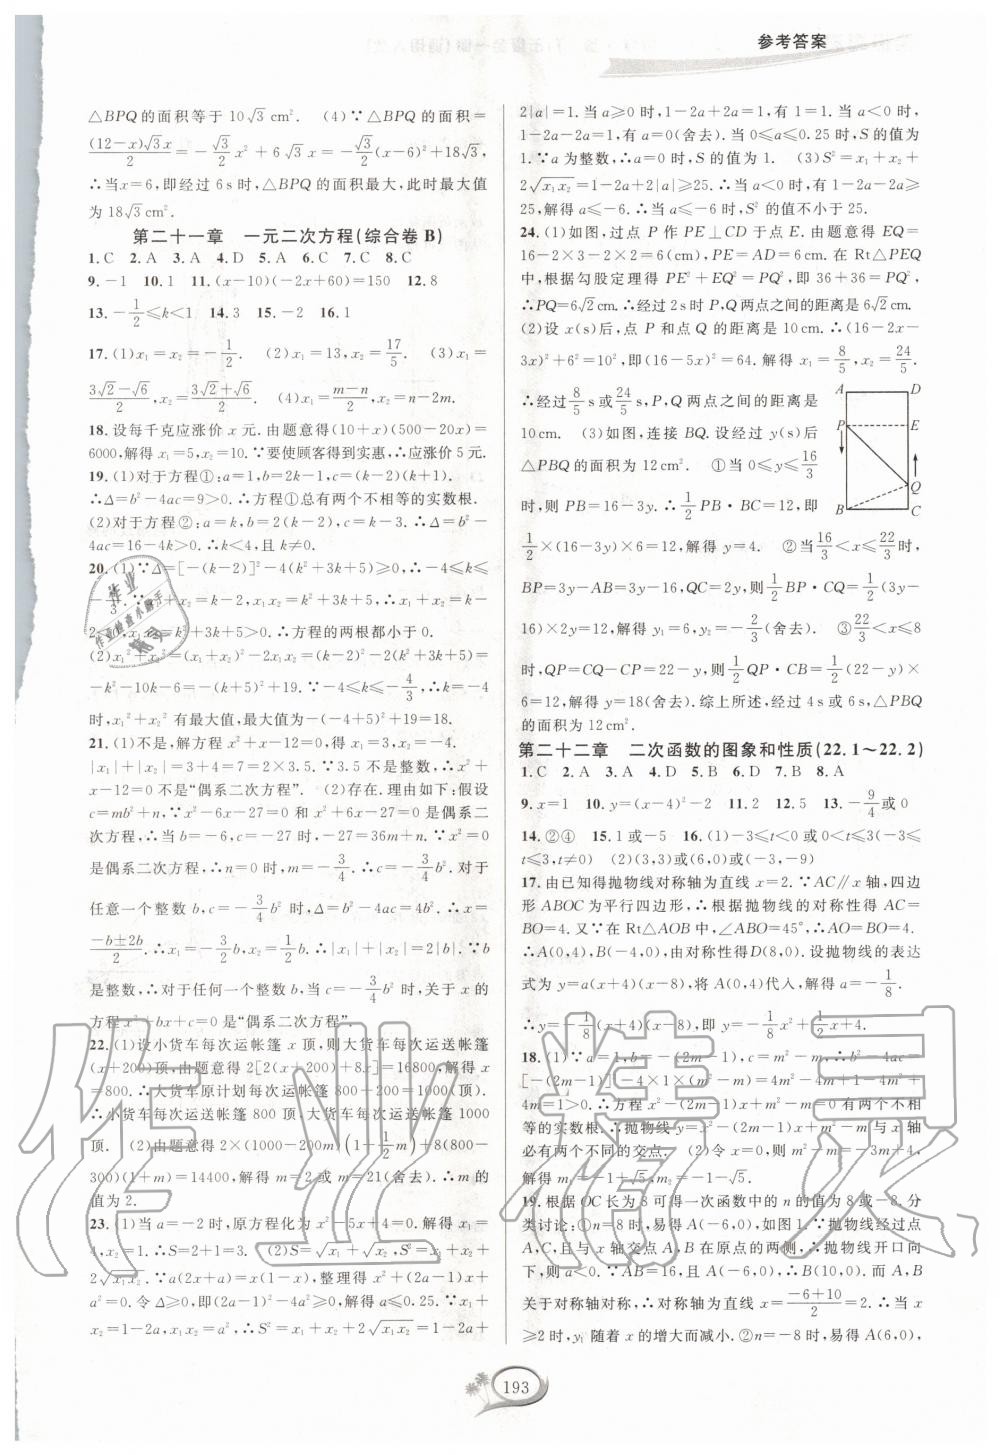 参考答案
△BPQ的面积等于10√3 cm². (4)∵△BPQ的面积=
(12-x)√3x/2=-√3/2x²+6√3x=-√3/2(x-6)²+18√3,
∴当x=6,即经过6 s时,△BPQ的面积最大,此时最大值
为18√3 cm².
第二十一章 一元二次方程(综合卷B)
1.C 2.A 3.A 4.D 5.A 6.C 7.C 8.C
9.-1 10.1 11.(x-10)(-2x+60)=150 12.8
13.-1/2≤k<1 14.3 15.-2 16.1
17.(1)x₁=x₂=-1/2. (2)x₁=13,x₂=17/5. (3)x₁=
(3√2-√6)/2,x₂=(3√2+√6)/2. (4)x₁=(m-n)/2,x₂=n-2m.
18.设每千克应涨价x元.由题意得(10+x)(500-20x)=
6000,解得x₁=5,x₂=10.∵要使顾客得到实惠,∴应涨价5元.
19.(1)对于方程①:a=1,b=2k-1,c=(k-2)(k+1).
∴Δ=b²-4ac=9>0.∴方程①总有两个不相等的实数根.
(2)对于方程②:a=k,b=2(k-2),c=k-3.∴Δ=b²-
4ac=16-4k>0.∴k<4,且k≠0.
20.(1)∵Δ=[-(k-2)]²-4(k²+3k+5)≥0,∴-4≤k≤
-4/3.∵x₁+x₂=k-2,x₁x₂=k²+3k+5,∴x₁+x₂=k-
2<0,x₁x₂=k²+3k+5>0.∴方程的两根都小于0.
(2)x₁²+x₂²=(x₁+x₂)²-2x₁x₂=(k-2)²-2(k²+3k+5)=
-k²-10k-6=-(k+5)²+19.∵-4≤k≤-4/3,∴k=-4
时,x₁²+x₂²有最大值,最大值为-(-4+5)²+19=18.
21.(1)不是,解方程x²+x-12=0,得x₁=3,x₂=-4.
|x₁|+|x₂|=3+4=7=2×3.5.∵3.5不是整数,∴x²+
x-12=0不是“偶系二次方程”. (2)存在.理由如下:假设
c=mb²+n,∵x²-6x-27=0和x²+6x-27=0是偶系二
次方程,∴当b=-6,c=-27时,-27=36m+n.∵x²=0
是偶系二次方程,∴n=0时,m=-3/4.∴c=-3/4b².对于
任意一个整数b,c=-3/4b²时,Δ=b²-4ac=4b².∴x=
(-b±2b)/2.∴x₁=-3/2b,x₂=1/2b.∴|x₁|+|x₂|=2|b|.∵b
是整数,∴对于任何一个整数b,当c=-3/4b²时,关于x的
方程x²+bx+c=0是“偶系二次方程”
22.(1)设小货车每次运帐篷x顶,则大货车每次运送帐篷
(x+200)顶,由题意得2[2(x+200)+8x]=16800,解得x
=800.∴大货车原计划每次运帐篷800+200=1000(顶).
∴小货车每次运送帐篷800顶,大货车每次运送帐篷1000
顶. (2)由题意得2×(1000-200m)(1+1/2m)+8(800-
300)(1+m)=14400,解得m=2或m=21(舍去).∴m的
值为2.
23.(1)当a=-2时,原方程化为x²-5x+4=0.解得x=1,x=
4,∴S=2+1=3. (2)S=√x₁+√x₂,S²=x₁+x₂+
2√x₁x₂.∵a(2x+a)=x(1-x),整理得x²+(2a-1)x+
a²=0.令Δ≥0,即(2a-1)²-4a²≥0.解得a≤0.25.∵x₁+
x₂=1-2a,x₁x₂=a²,∴S²=x₁+x₂+2√x₁x₂=1-2a+
2|a|=1.当a≥0时,1-2a+2a=1,有1=1.当a<0时,
1-2a-2a=1,有a=0(舍去).当0≤a≤0.25时,S的值为
1.∵a为整数,∴a=0时,S的值为1. (3)S²=x₁+x₂+
2√x₁x₂=1-2a+2|a|≥25.∴当a<0时,1-2a-2a≥
25,解得a≤-6.∴当a≤-6时,S²的值不小于25.
24.(1)如图,过点P作PE⊥CD于点E.由题意得EQ=
16-2×3-2×2=6(cm),PE=AD=6cm.在Rt△PEQ
中,根据勾股定理得PE²+EQ²=PQ²,即36+36=PQ².
∴PQ=6√2 cm.∴经过2s时P,Q两点之间的距离是6√2 cm.
(2)设x(s)后,点P和点Q的距离是10cm.∴(16-2x-
3x)²+6²=10²,即(16-5x)²=64.解得x₁=8/5,x₂=24/5.
∴经过8/5 s或24/5 s,P,Q两点之间的距离是
10cm. (3)如图,连接BQ.设经过y(s)后
△PBQ的面积为12cm². ①当0≤y≤16/3
时,则PB=16-3y.∴1/2PB·BC=12,即
1/2×(16-3y)×6=12,解得y=4. ②当16/3<x≤22/3时,
BP=3y-AB=3y-16,QC=2y,则1/2BP·CQ=1/2(3y-
16)×2y=12,解得y₁=6,y₂=-2/3(舍去). ③22/3<x≤8
时,QP=CQ-CP=22-y,则1/2QP·CB=1/2(22-y)×
6=12,解得y=18(舍去).综上所述,经过4s或6s,△PBQ
的面积为12cm².
A D
P E
Q
B C
第二十二章 二次函数的图象和性质(22.1~22.2)
1.C 2.A 3.A 4.D 5.B 6.D 7.B 8.A
9.x=1 10.y=(x-4)²-2 11.2 12.5 13.-9/4或0
14.②④ 15.1或-5 16.(1)-3≤t<0或0<t≤3(-3≤
t≤3,t≠0) (2)(3,3)或(6,0)或(-3,-9)
17.由已知得抛物线对称轴为直线x=2.∵AC∥x轴,四边
形ABOC为平行四边形,∴根据抛物线的对称性得AC=
BO=4.又∵在Rt△AOB中,∠ABO=45°,∴AO=BO=4.
∴A(0,4),B(-4,0),由对称性得D(8,0).设抛物线的表达
式为y=a(x+4)(x-8),将A(0,4)代入,解得a=-1/8.
∴y=-1/8(x+4)(x-8),即y=-1/8x²+1/2x+4.
18.(1)∵a=1,b=-(2m-1),c=m²-m,∴b²-4ac=
[-(2m-1)]²-4×1×(m²-m)=4m²-4m+1-4m²+
4m=1>0.∴方程x²-(2m-1)x+m²-m=0有两个不相
等的实数根.∴抛物线y=x²-(2m-1)x+m²-m与x轴
必有两个不同的交点. (2)令x=0,则m²-m=-3m+4,
解得m₁=-1+√5,m₂=-1-√5.
19.根据OC长为8可得一次函数中的n的值为8或-8.分
类讨论:①n=8时,易得A(-6,0),如图1.∵抛物线经过点
A,C,且与x轴交点A,B在原点的两侧,∴抛物线开口向
下,则a<0.∵AB=16,且A(-6,0),∴B(10,0).而A,B
关于对称轴对称,∴对称轴直线x=(-6+10)/2=2.∴当x
≥2时,y₁随着x的增大而减小.②n=-8时,易得A(6,0),
193
作业精灵